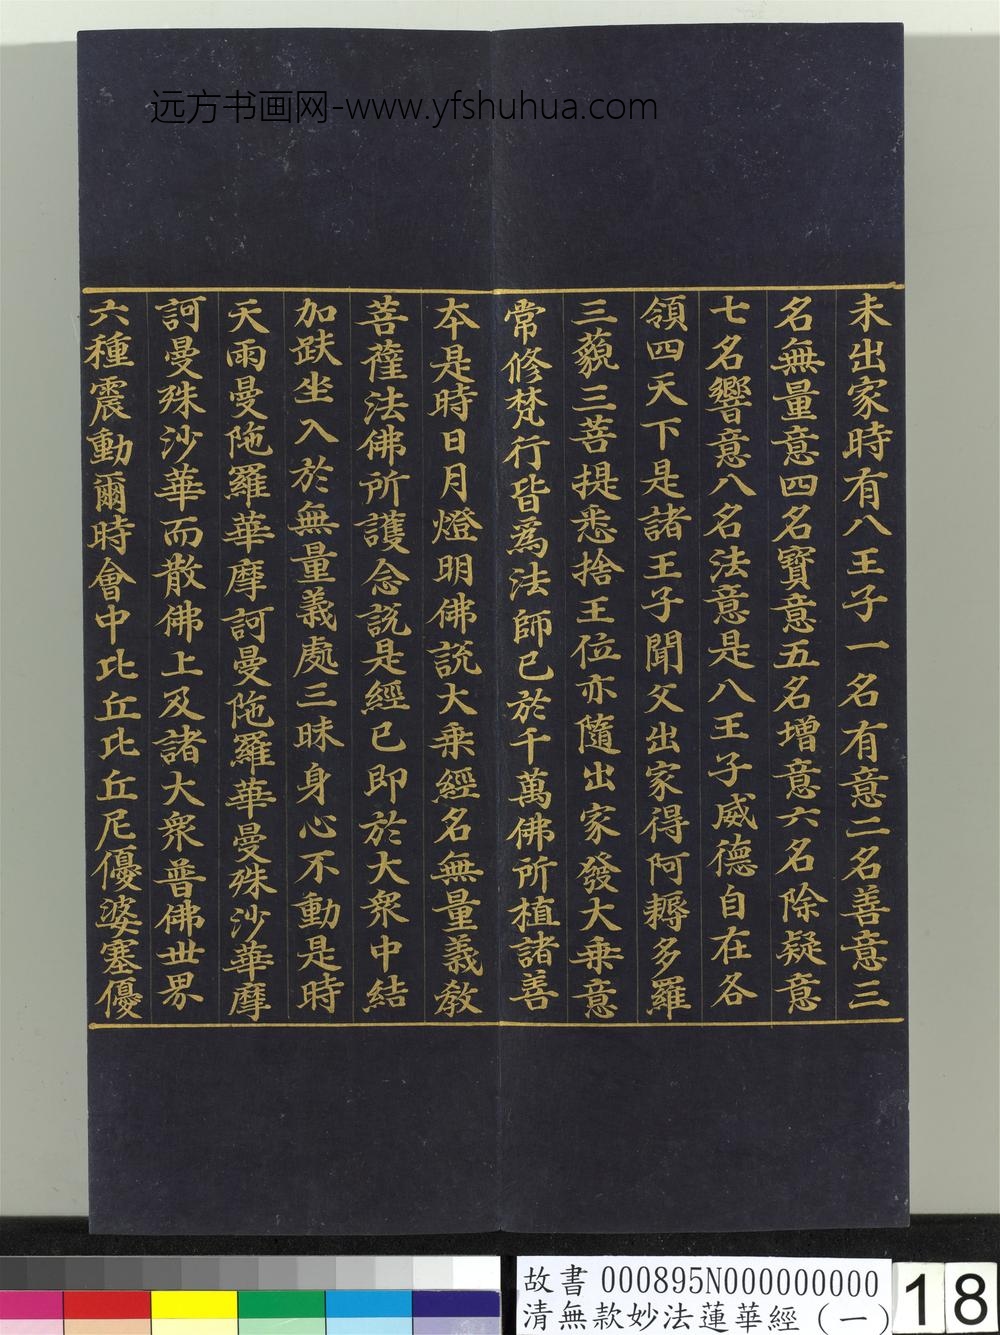 远方书画网-www.yfshuhua.com
未出家時有八王子一名有意二名善意三
名無量意四名寶意五名增意六名除疑意
七名響意八名法意是八王子威德自在各
領四天下是諸王子聞父出家得阿耨多羅
三藐三菩提悉捨王位亦隨出家發大乘意
常修梵行皆為法師已於千萬佛所植諸善
本是時日月燈明佛說大乘經名無量義教
菩薩法佛所護念說是經已即於大眾中結
加趺坐入於無量義處三昧身心不動是時
天雨曼陁羅華摩訶曼陁羅華曼殊沙華摩
訶曼殊沙華而散佛上及諸大眾普佛世界
六種震動爾時會中比丘比丘尼優婆塞優
故書 000895N000000000
清無款妙法蓮華經（一）
18